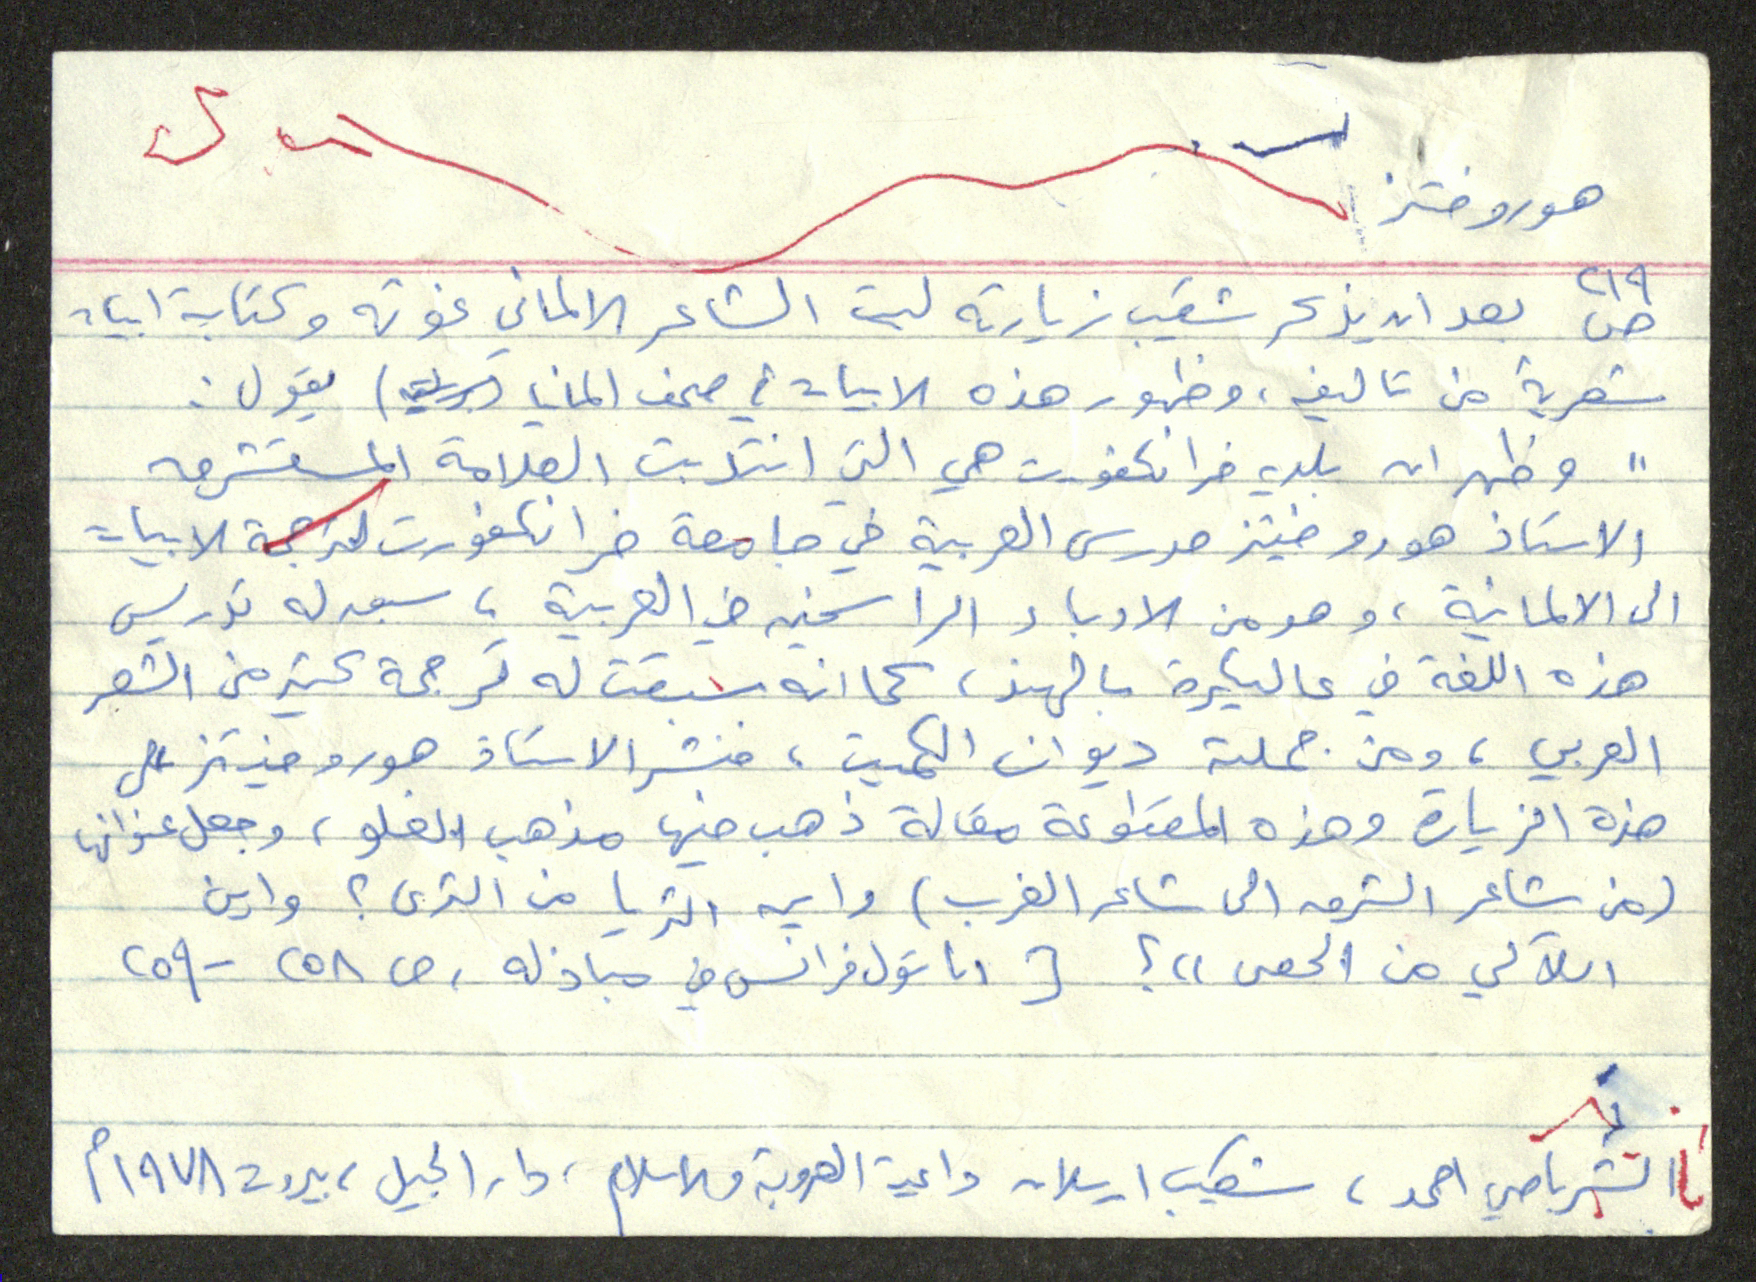 هوروفتز
ص ٢١٩ بعد ان يذكر شكيب زيارته لبيت الشاعر الالماني غوته وكتابة ابيات
شعرية من تأليفه، وظهور هذه الابيات في صحف المانيا ( ) يقول:
" وظهر ان بلدية فرانكفورت هي التي انتدبت العلامة المستشرق
الاستاذ هوروفيتز مدرس العربية في جامعة فرانكفورت لترجمة الابيات
الى الالمانية، وهو من الادباء الراسخين في العربية، سبق له تدريس
هذه اللغة في عاليكرة بالهند، كما انه سبقت له ترجمة كثير من الشعر
العربي، ومن جملته ديوان الكميت، فنشر الاستاذ هوروفيتز على
هذه الزيارة وهذه المقطوعة مقالة ذهب فيها مذهب الغلو، وجعل عنوانها
(من شاعر الشرق الى شاعر الغرب) واين الثريا من الثرى؟ واين
اللآلي من الحصى"؟ [ اناتول فرانس في مباذله، ص ٢٥٨ - ٢٥٩
الشرباصي احمد، شكيب ارسلان داعية العروبة والاسلام، دار الجيل، بيروت ١٩٧٨م